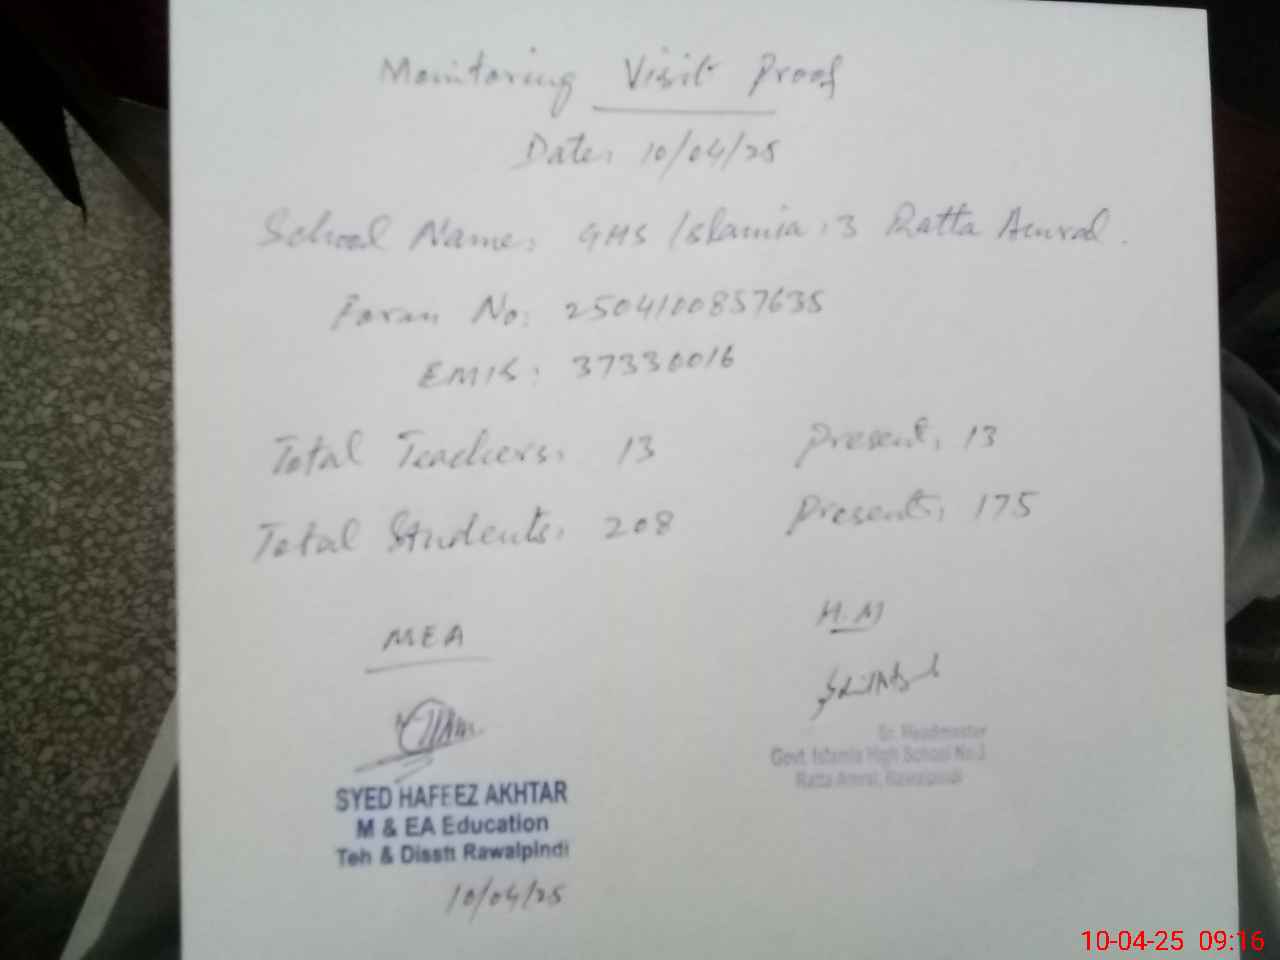 Monitoring Visit Proof
Date: 10/04/25
School Name: GHS Islamia : 3 Ratta Amral.
Foram No: 2504100857635
EMIS: 37330016
Total Teachers: 13 Present: 13
Total Students: 208 Present: 175
MEA
H.M
SYED HAFEEZ AKHTAR
M & EA Education
Teh & Disstt Rawalpindi
10/04/25
Sr. Headmaster
Govt. Islamia High School No.3
Ratta Amral, Rawalpindi
10-04-25 09:16